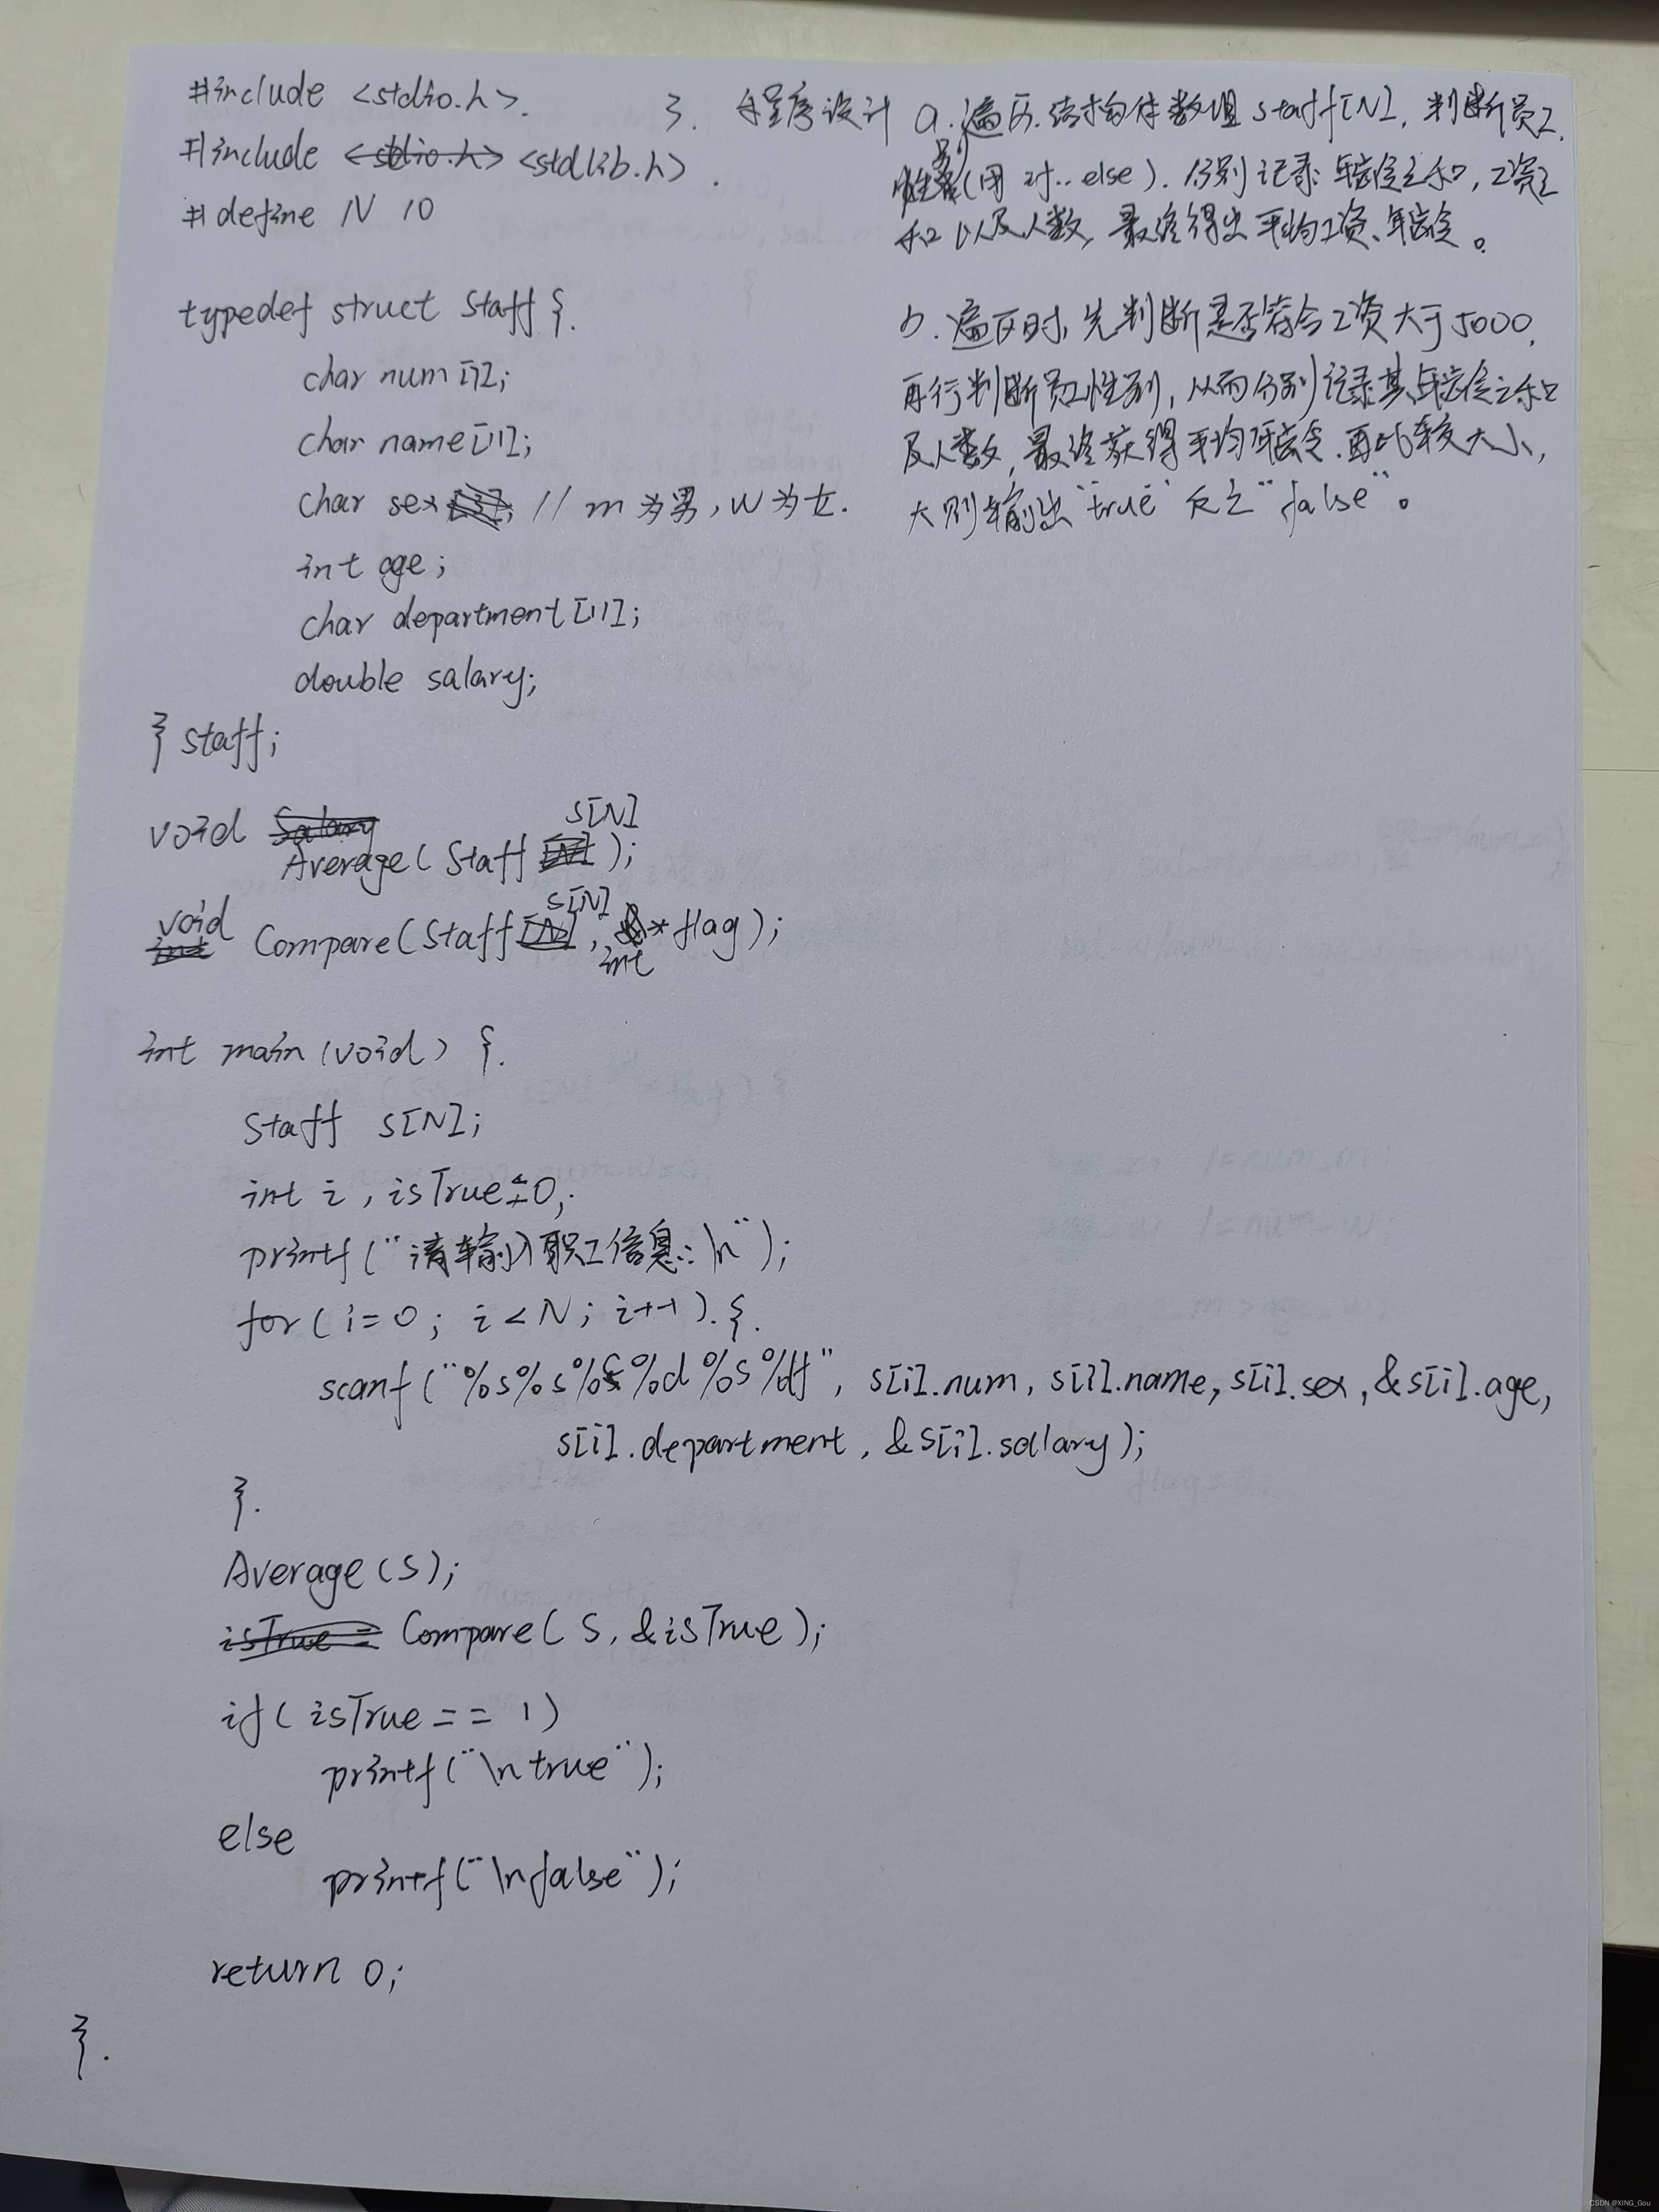 #include <stdio.h>.
#include <stdlib.h>.
#define N 10
typedef struct Staff {.
char num[7];
char name[11];
char sex; // m为男,w为女.
int age;
char department[11];
double salary;
} Staff;
void Average(Staff s[N]);
void Compare(Staff s[N], int *flag);
int main(void) {.
Staff s[N];
int i, isTrue=0;
printf("请输入职工信息:\n");
for(i=0; i<N; i++).{.
scanf("%s%s%c%d%s%lf", s[i].num, s[i].name, s[i].sex, &s[i].age,
s[i].department, &s[i].salary);
}.
Average(s);
Compare(s, &isTrue);
if(isTrue == 1)
printf("\ntrue");
else
printf("\nfalse");
return 0;
}.
3. 程序设计 a. 遍历结构体数组staff[N],判断员工
性别(用if..else).分别记录年龄之和,工资之
和以及人数,最终得出平均工资、年龄。
b. 遍历时,先判断是否符合工资大于5000,
再行判断员工性别,从而分别记录其年龄之和
及人数,最终获得平均年龄,再比较大小,
大则输出"true"反之"false"。
CSDN @XING_Gou